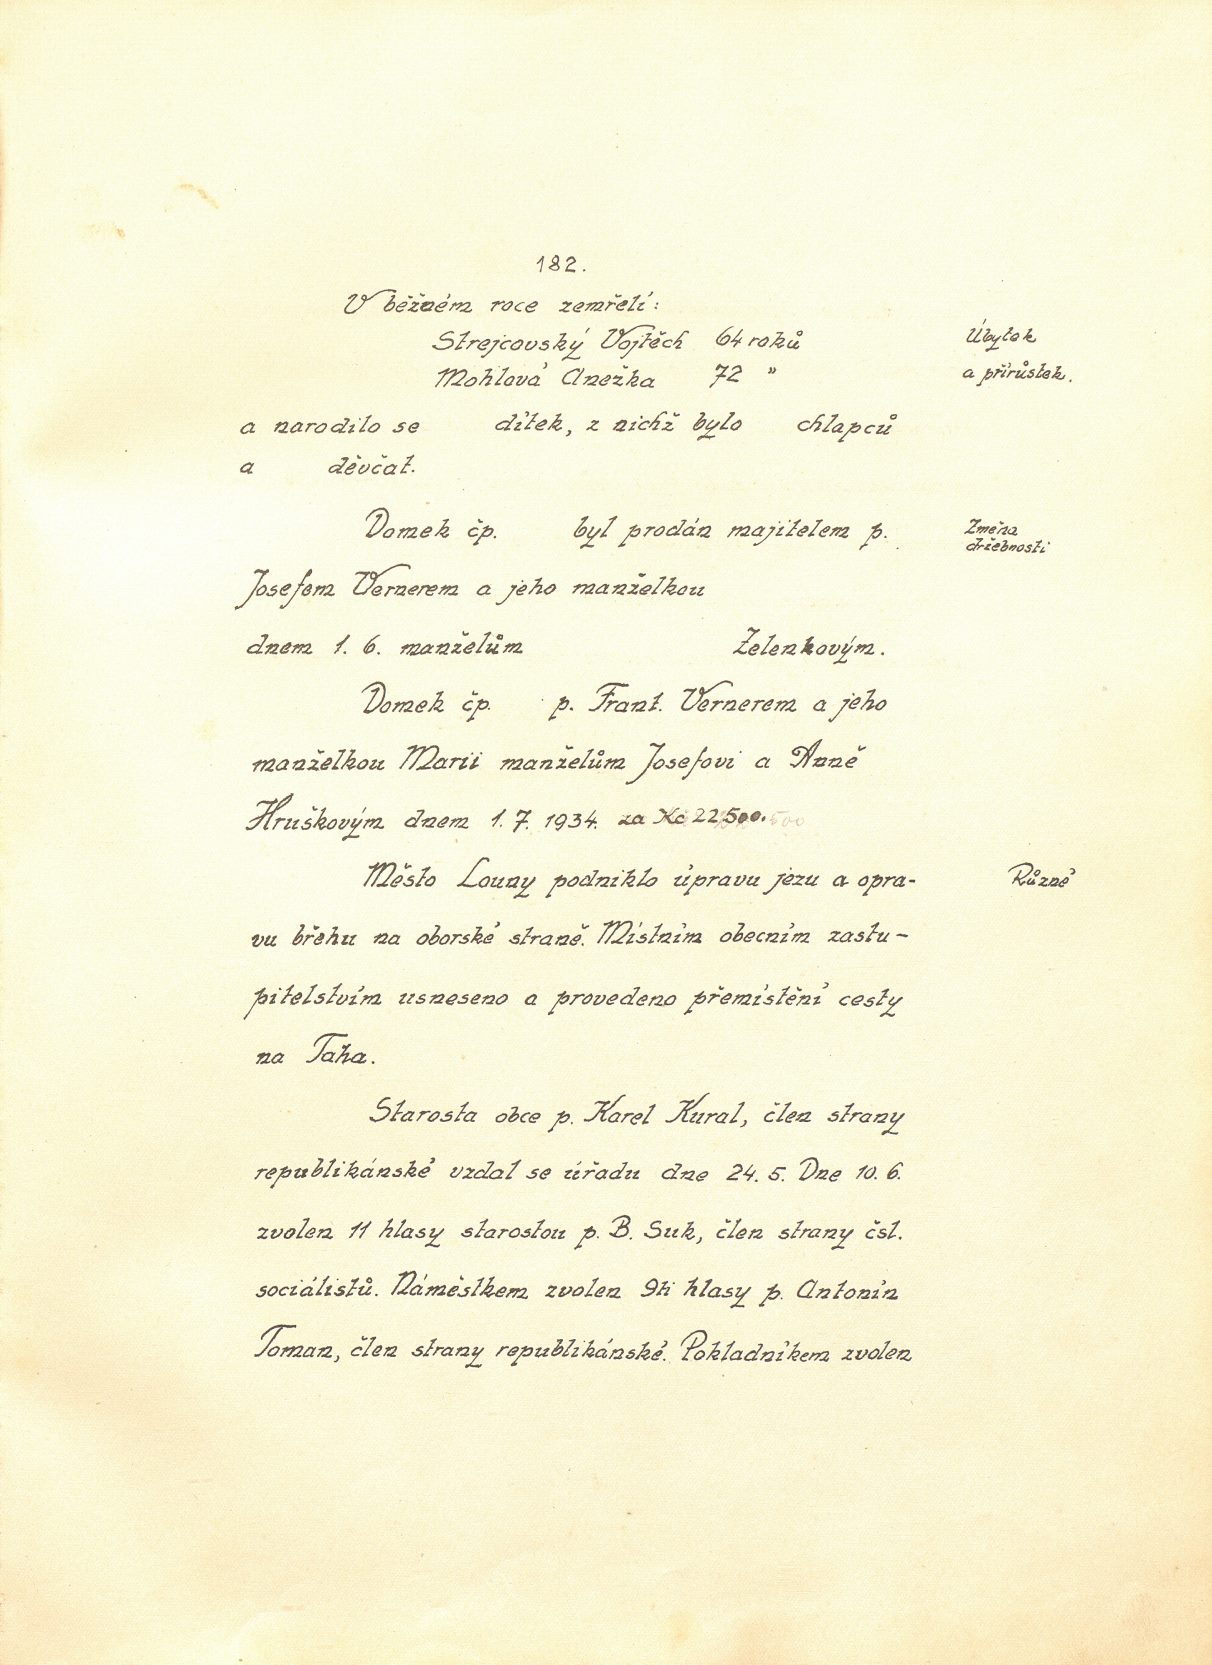 182.
V běžném roce zemřeli:
Strejcovský Vojtěch 64 roků
Úbytek
Mohlová Anežka 72 "
a přírůstek.
a narodilo se dítek, z nichž bylo chlapců
a děvčat.
Domek čp. byl prodán majitelem p.
Změna
držebnosti
Josefem Vernerem a jeho manželkou
dnem 1. 6. manželům Zelenkovým.
Domek čp. p. Frant. Vernerem a jeho
manželkou Marii manželům Josefovi a Anně
Hruškovým dnem 1. 7. 1934. za Kč 22500.
Město Louny podniklo úpravu jezu a opra-
Různé
vu břehu na oborské straně. Místním obecním zastu-
pitelstvím usneseno a provedeno přemístění cesty
na Taha.
Starosta obce p. Karel Kural, člen strany
republikánské vzdal se úřadu dne 24. 5. Dne 10. 6.
zvolen 11 hlasy starostou p. B. Suk, člen strany čsl.
sociálistů. Náměstkem zvolen 9ti hlasy p. Antonín
Toman, člen strany republikánské. Pokladníkem zvolen